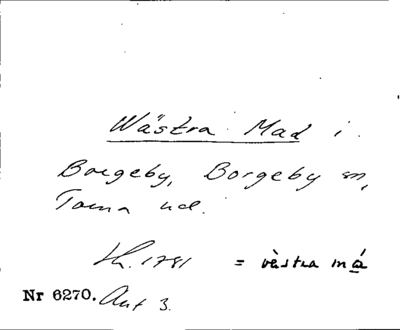 Wästra Mad i
Borgeby, Borgeby sn,
Torna hd.
Lh. 1781 = vèstra má
Nr 6270. Akt 3.